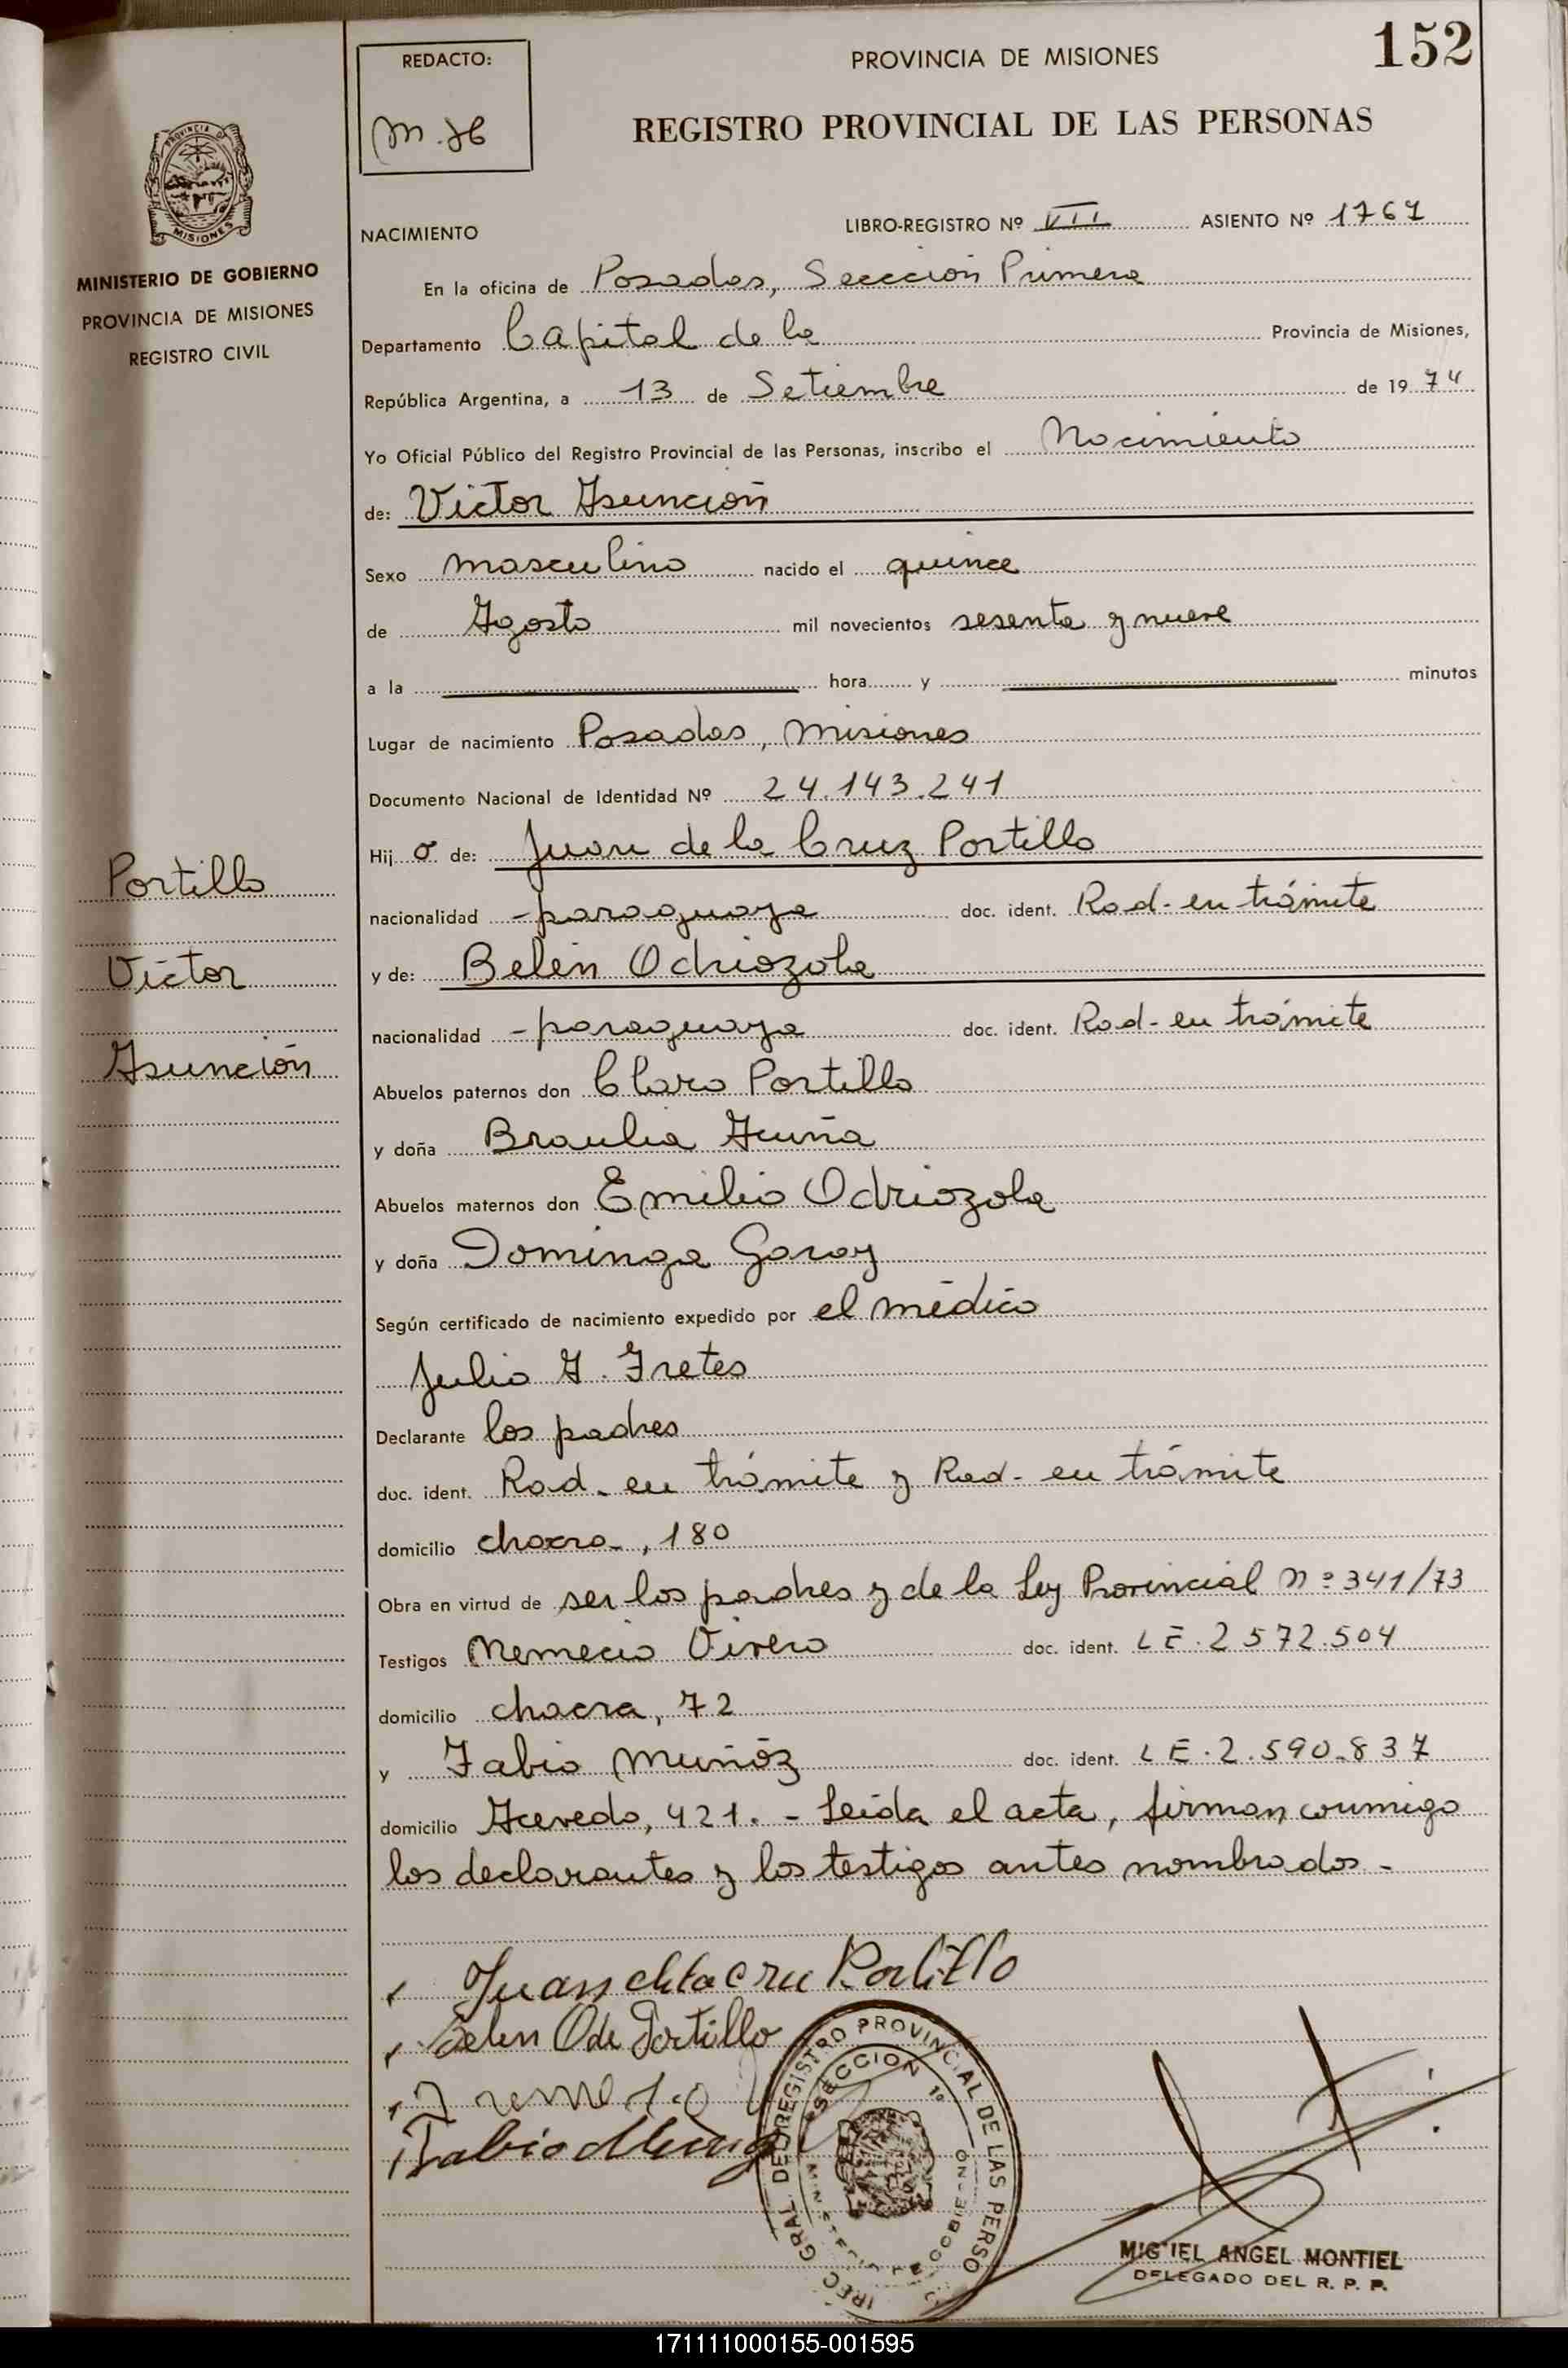 152
REDACTO:
PROVINCIA DE MISIONES
REGISTRO PROVINCIAL DE LAS PERSONAS
PROVINCIA DE
MISIONES
MINISTERIO DE GOBIERNO
PROVINCIA DE MISIONES
REGISTRO CIVIL
NACIMIENTO LIBRO-REGISTRO Nº VII ASIENTO Nº 1767
En la oficina de Posadas, Seccción Primera
Departamento Capital de la Provincia de Misiones,
República Argentina, a 13 de Setiembre de 19 74
Yo Oficial Público del Registro Provincial de las Personas, inscribo el Nacimiento
de: Victor Asunción
Sexo masculino nacido el quince
de Agosto mil novecientos sesenta y nueve
a la hora y minutos
Lugar de nacimiento Posadas, Misiones
Documento Nacional de Identidad Nº 24.143.241
Hij o de: Juan de la Cruz Portillo
nacionalidad -paraguaya doc. ident. Rad- en trámite
y de: Belén Odriozola
nacionalidad -paraguaya doc. ident. Rad- en trámite
Abuelos paternos don Claro Portillo
y doña Braulia Acuña
Abuelos maternos don Emilio Odriozola
y doña Dominga Garay
Según certificado de nacimiento expedido por el médico
Julio A. Fretes
Declarante los padres
doc. ident. Rad- en trámite y Rad- en trámite
domicilio chacra-, 180
Obra en virtud de ser los padres y de la Ley Provincial nº 341/73
Testigos Nemecio Vivero doc. ident. LE. 2572.504
domicilio chacra, 72
y Fabio Muñóz doc. ident. LE. 2.590.837
domicilio Acevedo, 421. - Leída el acta, firman conmigo
los declarantes y los testigos antes nombrados-
Portillo
Victor
Asunción
Juan delacru Portillo
Belen O de Portillo
Fabio
GRAL. DEL REGISTRO PROVINCIAL DE LAS PERSO
SECCION 1º
MIGUEL ANGEL MONTIEL
DELEGADO DEL R. P. P.
171111000155-001595